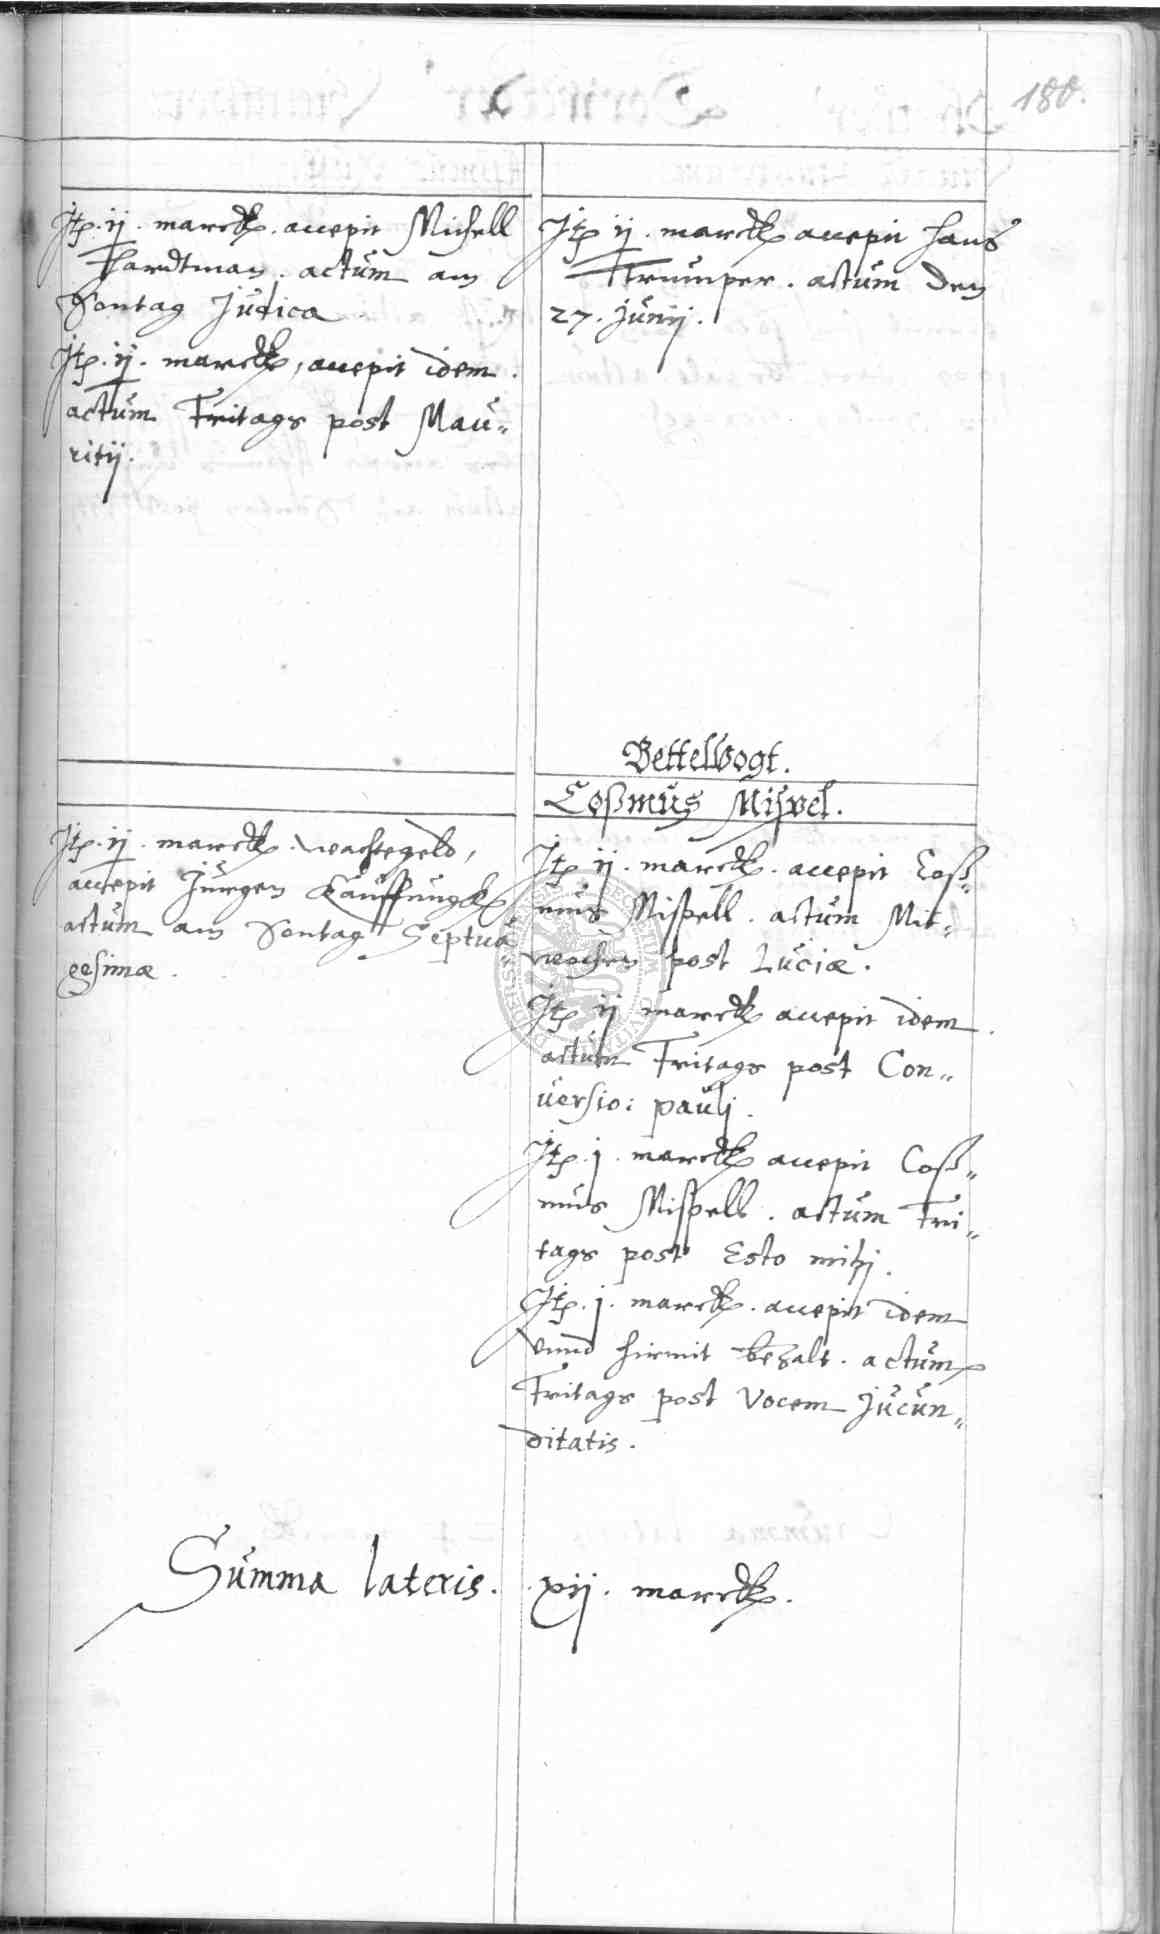 180.
Itꝑ. ij. marckꝭ. accepit Michell
Hardtman. actum am
Sontag Judica
Itꝑ. ij. marckꝭ, accepit idem.
actum Fritags post Mau„
ritij.
Itꝑ ij. marckꝭ accepit Hans
Trumper. actum den
27. Junij.
Itꝑ. ij. marckꝭ. wachegeld,
accepit Jurgen Kauffungckꝭ
actum am Sontag Septua„
gesimæ.
Bettelvogt.
Coßmus Mispel.
Itꝑ ij. marckꝭ. accepit Coß„
mus Mispell. actum Mit„
wochen post Luciæ.
Itꝑ ij marckꝭ accepit idem.
actum Fritags post Con„
versio: pauli.
Itꝑ. j. marckꝭ accepit Coß„
mus Mispell. actum Fri„
tags post Esto mihi.
Itꝑ. j. marckꝭ. accepit idem
vnnd hirmit bezalt. actum
Fritags post Vocem Jucun„
ditatis.
Summa lateris. xij. marckꝭ.